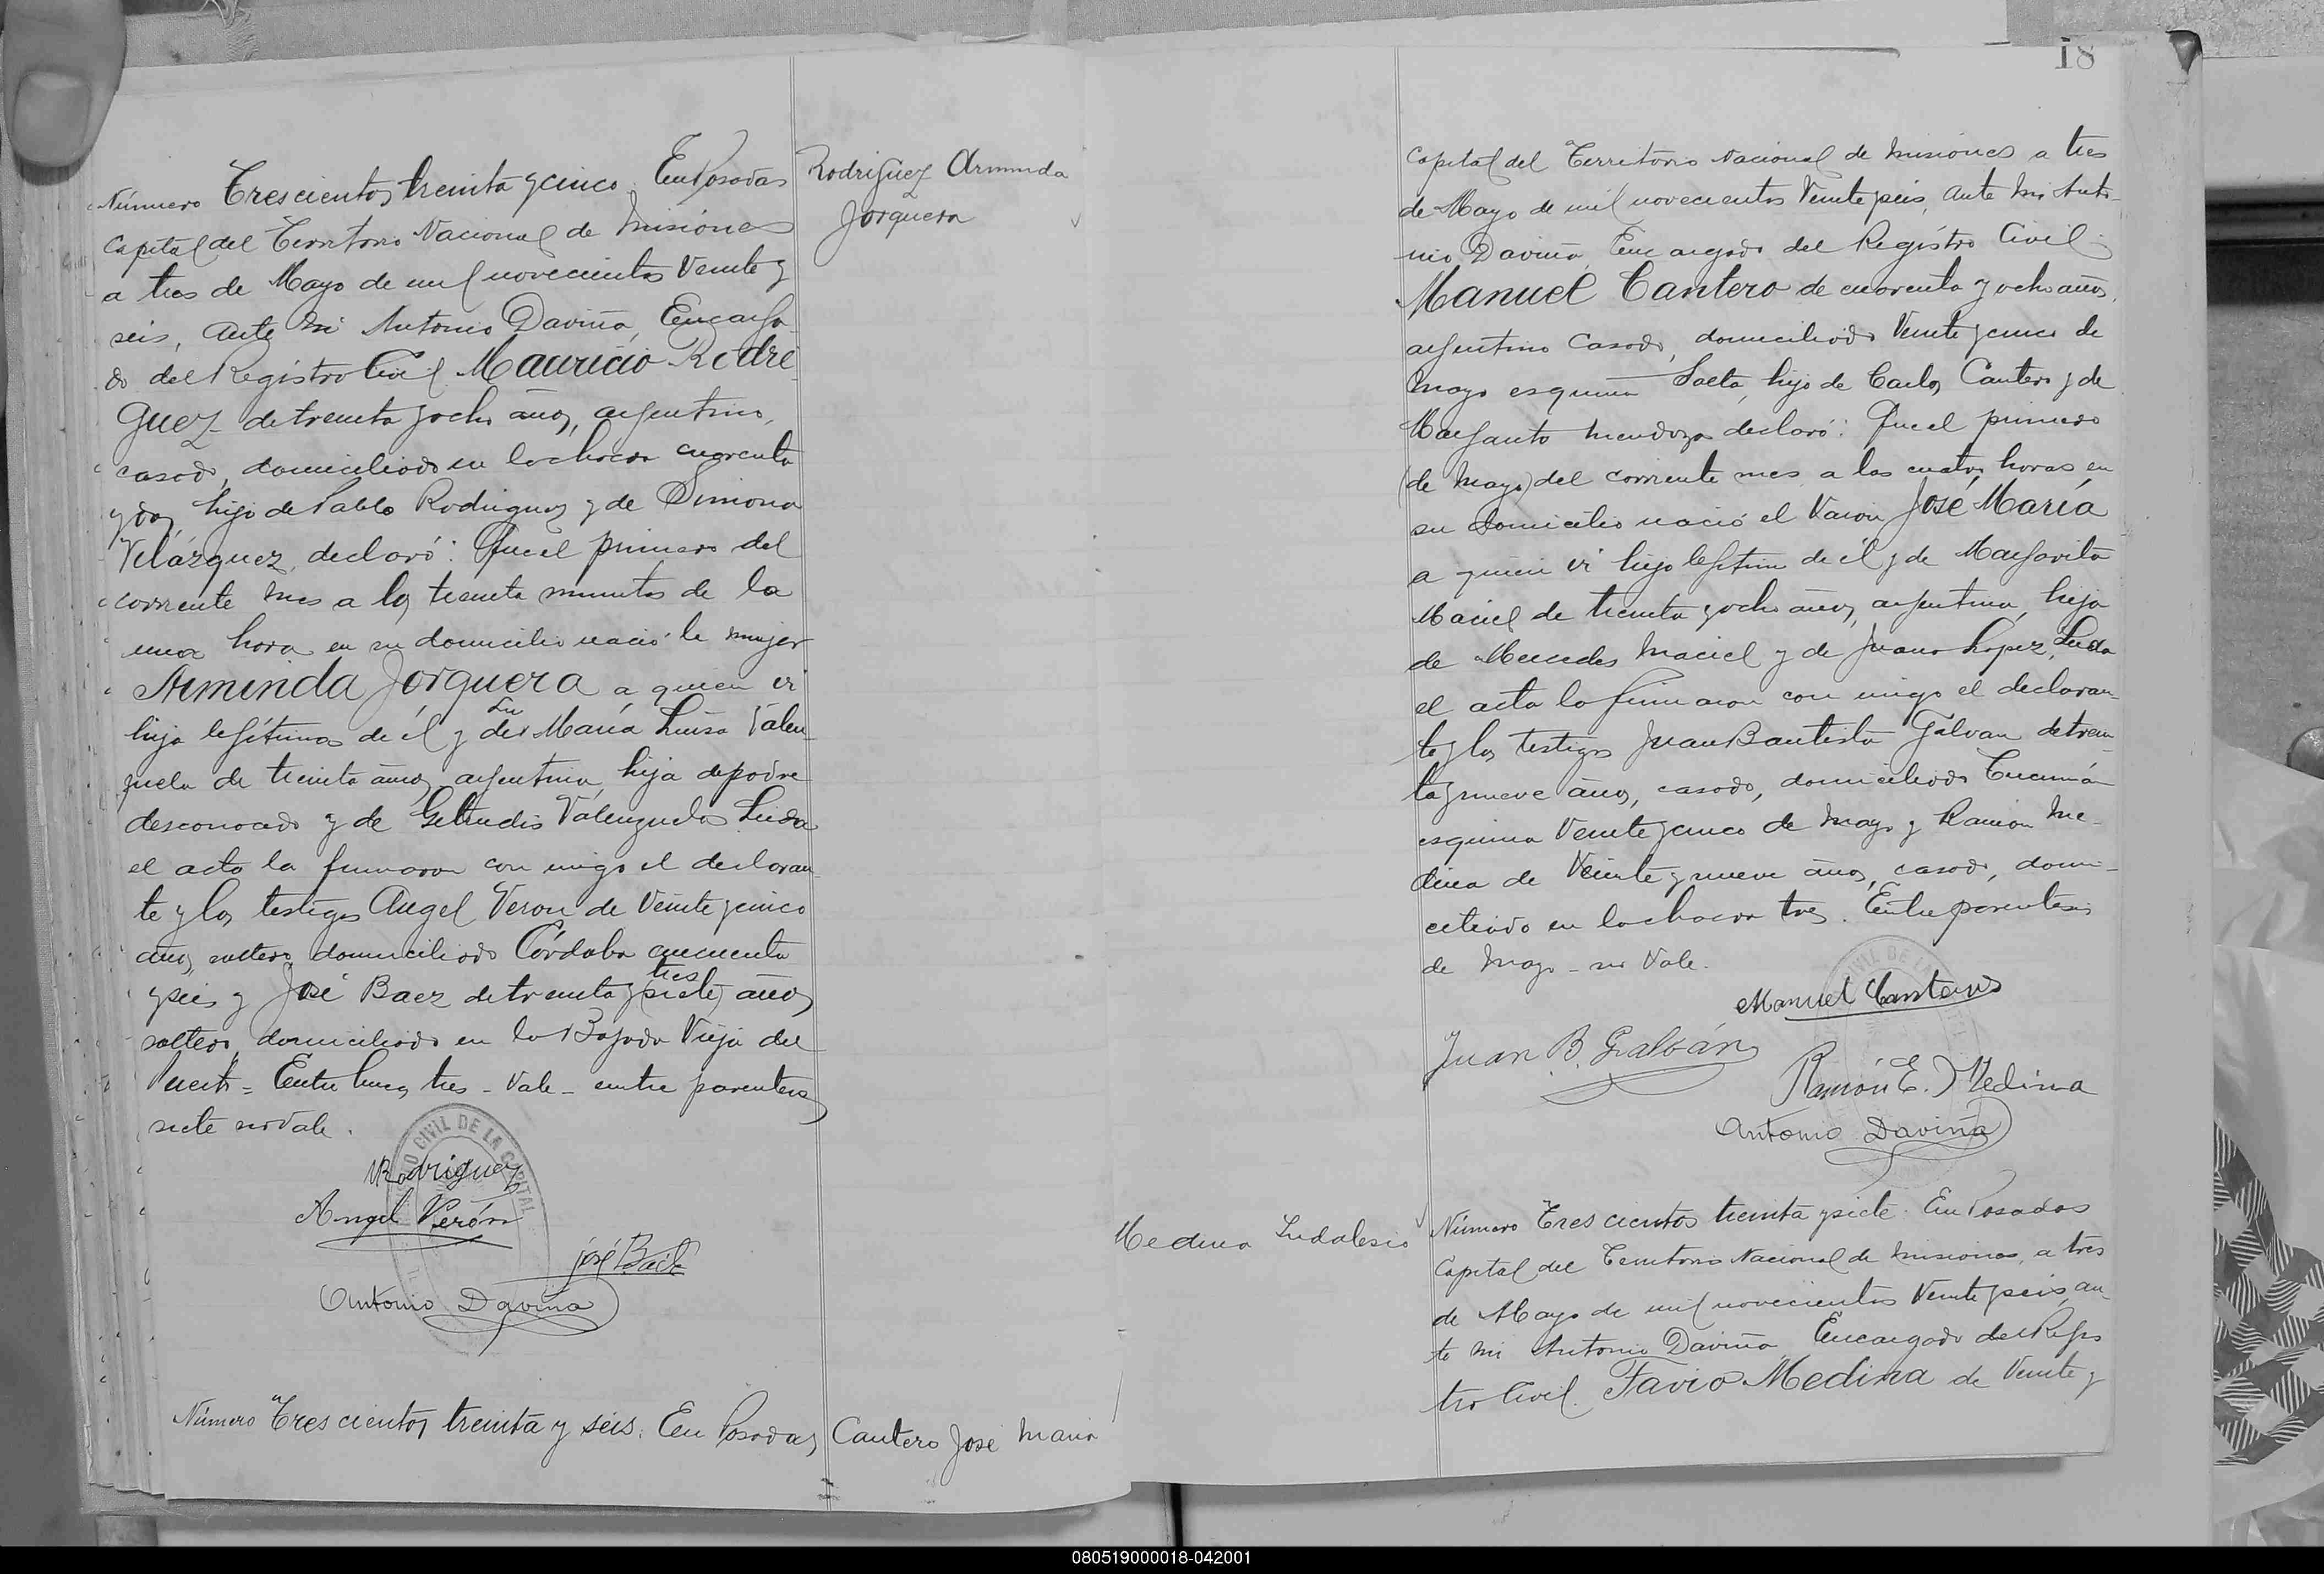 Número Trescientos treinta y cinco. En Posadas
Capital del Territorio Nacional de Misiones
a tres de Mayo de mil novecientos Veinte y
seis, ante mi Antonio Daviña, Encarga
do del Registro Civil Mauricio Rodri
guez de treinta y ocho años, argentino,
casado, domiciliado en la chacra cuarenta
y dos, hijo de Pablo Rodriguez y de Simona
Velázquez, declaró: Que el primero del
corriente mes a los treinta minutos de la
una hora en su domicilio nació la mujer
Arminda Jorguera a quien vi
hija legítima de él y de Su María Luisa Valen
zuela de treinta años, argentina, hija de padre
desconocido y de Getrudis Valenzuela Leida
el acta la firmaron con migo el declaran
te y los testigos Angel Veron de Veinte y cinco
años, soltero, domiciliado Córdoba cincuenta
y seis y José Baez de treinta y (siete) tres años,
soltero, domiciliado en la Bajada Vieja del
Puerto = Entre lineas, tres - Vale - entre parentesis
siete no vale.
MRodriguez
Angel Verón
José Baez
Antonio Daviña
Número Tres cientos treinta y seis. En Posadas,
Rodriguez Arminda
Jorguera
Cantero José Maria
18
Capital del Territorio Nacional de Misiones a tres
de Mayo de mil novecientos Veinte y seis, ante mi Anto-
nio Daviña, Encargado del Registro Civil
Manuel Cantero de cuarenta y ocho años,
argentino Casado, domiciliado Veinte y cinco de
Mayo esquina Salta, hijo de Carlos Cantero y de
Margarita Mendoza declaró: Que el primero
(de Mayo) del corriente mes a las cuatro horas, en
su domicilio nació el Varon José María
a quien vi hijo legítimo de él y de Margarita
Maciel de treinta y ocho años, argentina, hija
de Mercedes Maciel y de Juana Lopez, Leida
el acta la firmaron con migo el declaran-
te y los testigos Juan Bautista Galvan de trein-
ta y nueve años, casado, domiciliado Tucumán
esquina Veinte y cinco de Mayo y Ramón Me-
dina de Veinte y nueve años, casado, domi-
ciliado en la chacra tres. Entre parentesis
de Mayo - no Vale.
Manuel Cantero
Juan B. Galván
Ramón E. Medina
Antonio Daviña
Medina Indalesio
Número Tres cientos treinta y siete. En Posadas
Capital del Territorio Nacional de Misiones, a tres
de Mayo de mil novecientos Veinte y seis, an-
te mi Antonio Daviña Encargado del Regis
tro Civil. Favio Medina de Veinte y
080519000018-042001